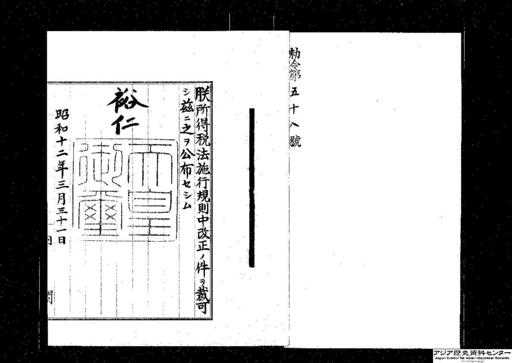 勅令第五十八號
朕所得税法施行規則中改正ノ件ヲ裁可
シ茲ニ之ヲ公布セシム
裕仁
天皇御璽
昭和十二年三月三十一日
アジア歴史資料センター
Japan Center for Asian Historical Records